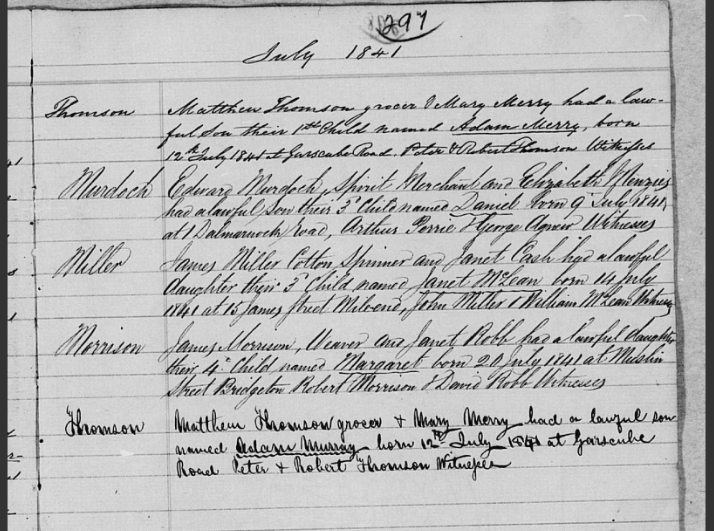 297
July 1841
Thomson Matthew Thomson grocer & Mary Merry had a law-
ful Son their 1st Child named Adam Merry, born
12th July 1841 at Garscube Road, Peter & Robert Thomson Witnesses
Murdoch Edward Murdoch, Spirit Merchant and Elizabeth Menzies
had a lawful Son their 3d Child named Daniel born 9th July 1841
at 1 Dalmarnock road, Arthur Perrie & George Agnew Witnesses
Miller James Miller Cotton Spinner and Janet Cash had a lawful
daughter their 3d Child named Janet McLean born 14 July
1841 at 15 James Street Milvend, John Miller & William McLean Witness
Morrison James Morrison, Weaver and Janet Robb had a lawful daughter
their 4th Child named Margaret born 20 July 1841 at Muslin
Street Bridgeton Robert Morrison & David Robb Witnesses
Thomson Matthew Thomson grocer & Mary Merry had a lawful son
named Adam Murray born 12th July 1841 at Garscube
Road Peter & Robert Thomson Witnesses